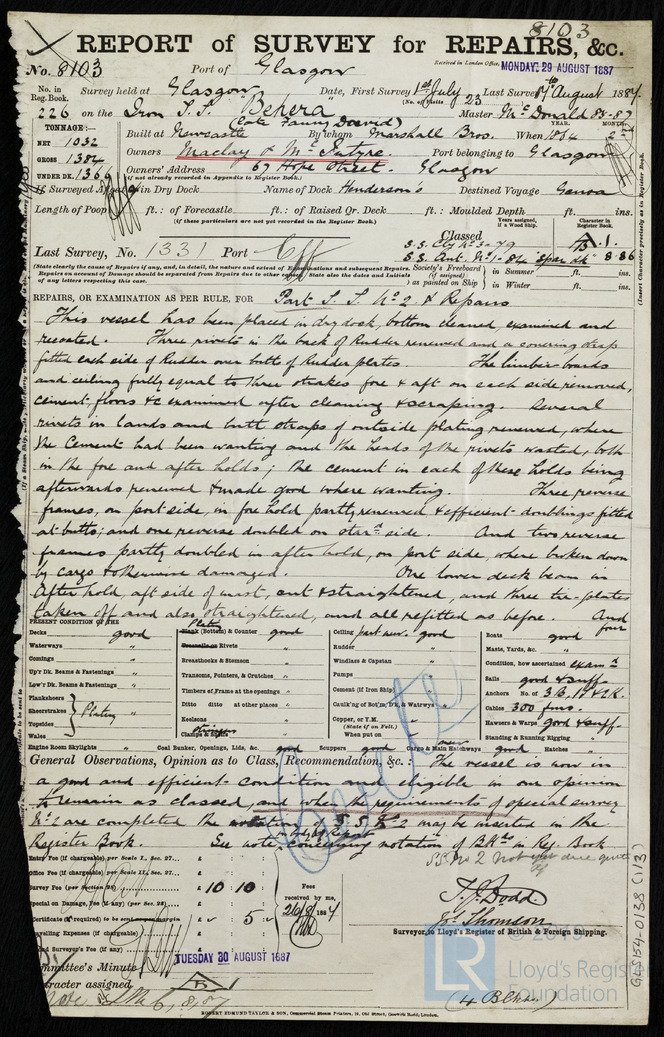 8103
REPORT of SURVEY for REPAIRS, &c.
No. 8103 Port of Glasgow Received in London Office, MONDAY 29 AUGUST 1887
No. in Reg. Book. Survey held at Glasgow Date, First Survey 1st July Last Survey August 1887
(No. of Visits 23
226 on the Iron S.S. "Behera" Master McDonald 85-87
(late Fanny David)
TONNAGE:— Built at Newcastle By whom Marshall Bros. When 1864 YEAR. MONTH.
NET 1032
GROSS 1384 Owners Maclay & McIntyre. Port belonging to Glasgow
UNDER DK. 1366 Owners' Address 67 Hope Street. Glasgow
(if not already recorded in Appendix to Register Book.)
If Surveyed Afloat or in Dry Dock Name of Dock Henderson's Destined Voyage Genoa
Length of Poop ft.: of Forecastle ft.: of Raised Qr. Deck ft.: Moulded Depth ft. ins.
(if these particulars are not yet recorded in the Register Book.)
Years assigned, if a Wood Ship. Character in Register Book
Last Survey, No. 133 Port Classed
A.1.
Spar dk 8.86
(State clearly the cause of Repairs if any, and, in detail, the nature and extent of Examinations and subsequent Repairs.
Repairs on account of Damage should be separated from Repairs due to other State also the dates and Initials
of any letters respecting this case.
Society's Freeboard (if assigned) as painted on Ship in Summer ft. ins.
in Winter ft. ins.
REPAIRS, OR EXAMINATION AS PER RULE, FOR Part S.S. No 2 & Repairs
This vessel has been placed in dry dock, bottom cleaned, examined and
recoated. Three rivets in the back of Rudder renewed and a covering strap
fitted each side of Rudder over butt of Rudder plates. The limber boards
and ceiling fully equal to three strakes fore & aft on each side removed,
cement, floors &c examined after cleaning & scraping. Several
rivets in lands and butt straps of outside plating renewed, where
the Cement had been wanting and the heads of the rivets wasted, both
in the fore and after holds; the cement in each of these holds being
afterwards renewed & made good where wanting. Three reverse
frames, on port side, in fore hold partly renewed & efficient doublings fitted
at butts; and one reverse doubled on stard side. And two reverse
frames partly doubled in after hold, on port side, where broken down
by cargo & otherwise damaged. One lower deck beam in
After hold, aft side of mast, cut & straightened, and three tie-plates
taken off and also straightened, and all refitted as before. And
four
PRESENT CONDITION OF THE
Decks good
Waterways "
Comings "
Up'r Dk. Beams & Fastenings "
Low'r Dk. Beams & Fastenings "
Planksheers
Sheerstrakes
Topsides
Wales
Plating "
Engine Room Skylights "
Plating
Plank (Bottom) & Counter good
Treenails or Rivets "
Breasthooks & Stemson "
Transoms, Pointers, & Crutches "
Timbers of Frame at the openings "
Ditto ditto at other places "
Keelsons "
Stringers
Clamps & Shelfs
Coal Bunker, Openings, Lids, &c. good
Ceiling part new. good
Rudder "
Windlass & Capstan "
Pumps "
Cement (if Iron Ship)
Caulk'ng of Bot'm, D'k, & Waterw'ys "
Copper, or Y.M.
(State if on Felt.)
When put on
Scuppers good Cargo & Main Hatchways good Hatches "
Boats good
Masts, Yards, &c. "
Condition, how ascertained examd
Sails good & suff.
Anchors No. of 3 B. 1 S & 2 K.
Cables 300 fms.
Hawsers & Warps good & suff.
Standing & Running Rigging
General Observations, Opinion as to Class, Recommendation, &c.: The vessel is now in
a good and efficient condition and eligible in our opinion
to remain as classed, and when the requirements of special survey
No 2 are completed the notation of S.S. No 2 may be inserted in the
Register Book. See note, concerning notation of in Reg. Book
Entry Fee (if chargeable) per Scale I., Sec. 27
Office Fee (if chargeable) per Scale II., Sec. 27
Survey Fee (per Section 28) £ 10 : 10
Special on Damage, Fee (if any) (per Sec. 28)
Certificate (if required) to be sent 5
Travelling Expenses (if chargeable)
Fees received by me, 26/8/1887
T. J. Dodd.
Jas. Thomson
Surveyor, to Lloyd's Register of British & Foreign Shipping.
Committee's Minute TUESDAY 30 AUGUST 1887
Character assigned
ROBERT EDMUND TAYLOR & SON, Commercial Steam Printers, 19, Old Street, Goswell Road, London.
GLS154-0138 (1/3)
LR
Lloyd's Register
Foundation